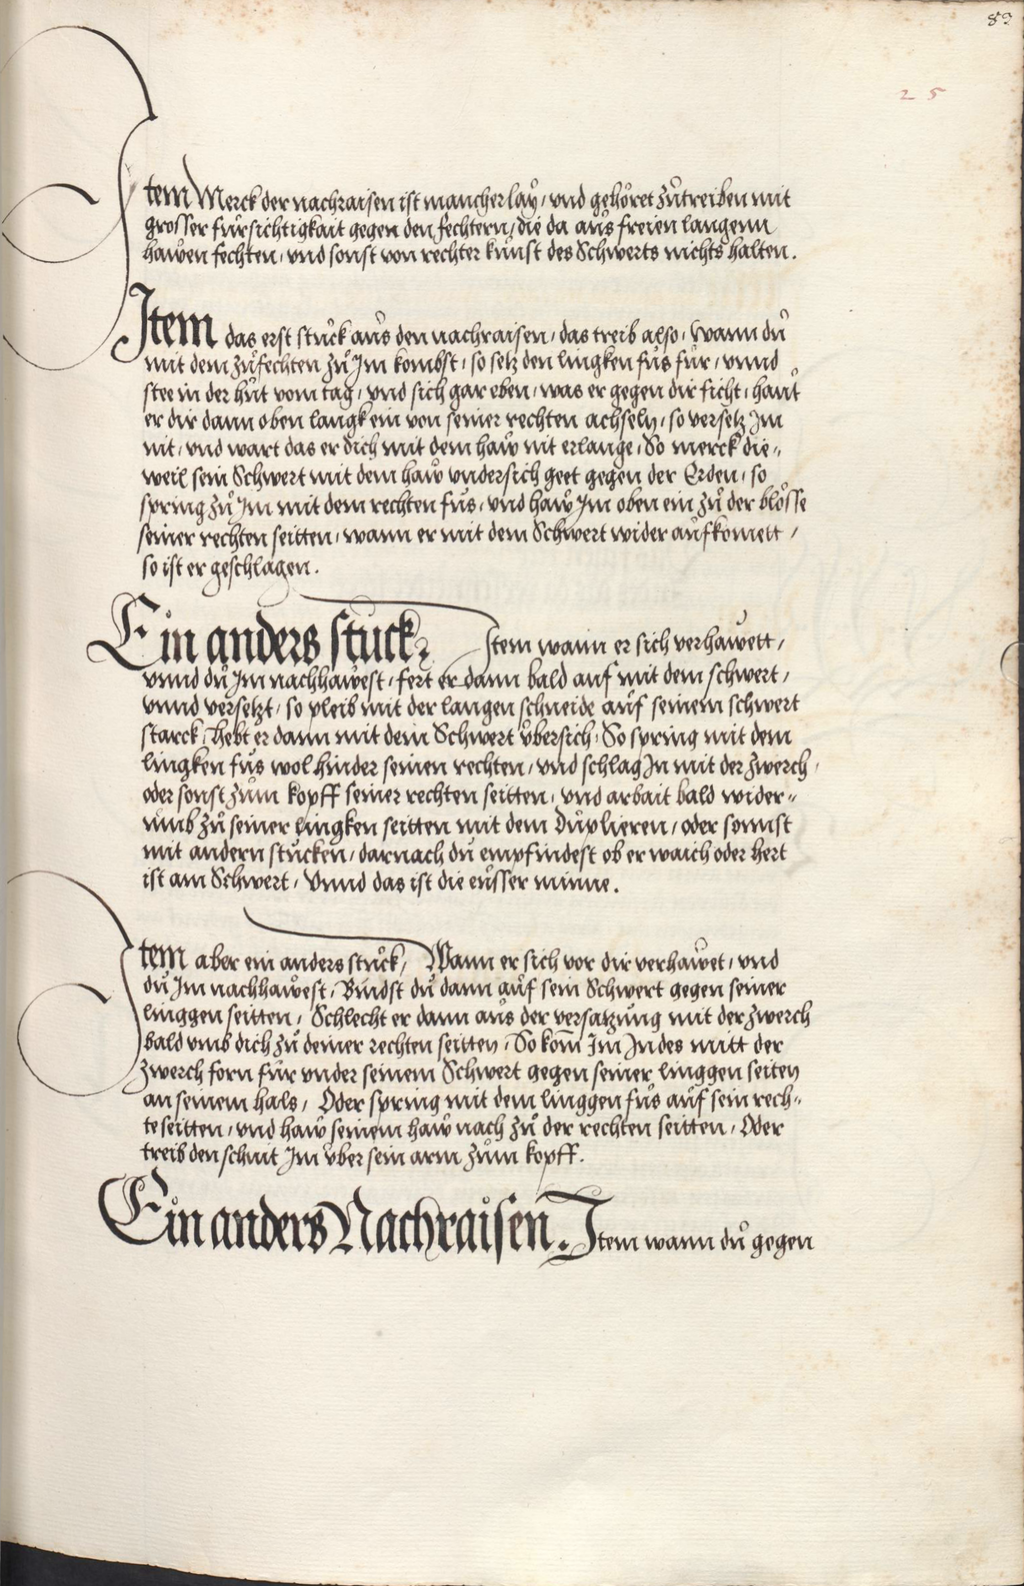 83
2 5
Item Merck der nachraisen ist mancherlaÿ / vnd gehöret zůtreiben mit
grosser fürsichtigkait gegen den fechtern / die da aůs freien langenn
hawen fechten / vnd sonst von rechter kunst des Schwerts nichts halten .
Item das erst stuck aůs den nachraisen / das treib also / Wann dů
mit dem zůfechten zů Im kombst / so setz den lingken fůs für / vnnd
stee in der hůt vom tag / vnd sich gar eben / was er gegen dir ficht / haut
er dir dann oben langk ein von seiner rechten achseln / so versetz Im
nit / vnd wart das er dich mit dem haw nit erlange / So merck die-
weil sein Schwert mit dem haw vndersich geet gegen der Erden / so
spring zů Im mit dem rechten fůs / vnd haw Im oben ein zů der blösse
seiner rechten seitten / wann er mit dem Schwert wider aufkomett /
so ist er geschlagen .
Ein anders stuck. Item wann er sich verhawett /
vnnd dů Im nachhawest / fert er dann bald auf mit dem schwert /
vnnd versetzt / so pleib mit der langen schneide auf seinem schwert
starck / hebt er dann mit dem Schwert übersich / So spring mit dem
lingken fůs wol hinder seinen rechten / vnd schlag In mit der zwerch /
oder sonst zům kopff seiner rechten seitten / vnd arbait bald wider-
vmb zů seiner lingken seitten mit dem Duplieren / oder sonnst
mit andern stucken / darnach dů empfindest ob er waich oder hert
ist am Schwert / Vnnd das ist die eüsser minne .
Item aber ein anders stuck / Wann er sich vor dir verhawet / vnd
dů Im nachhawest / Bindst dů dann aůf sein Schwert gegen seiner
linggen seitten / Schlecht er dann aůs der versatzung mit der zwerch
bald vmb dich zů deiner rechten seitten / So kom̄ Im Indes mitt der
zwerch forn für vnder seinem Schwert gegen seiner linggen seiten
an seinem hals / Oder spring mit dem linggen fůs aůf sein rech-
te seitten / vnd haw seinem haw nach zů der rechten seitten / Oder
treib den schnit Im über sein arm zům kopff .
Ein anders Nachraisen. Item wann dů gegen